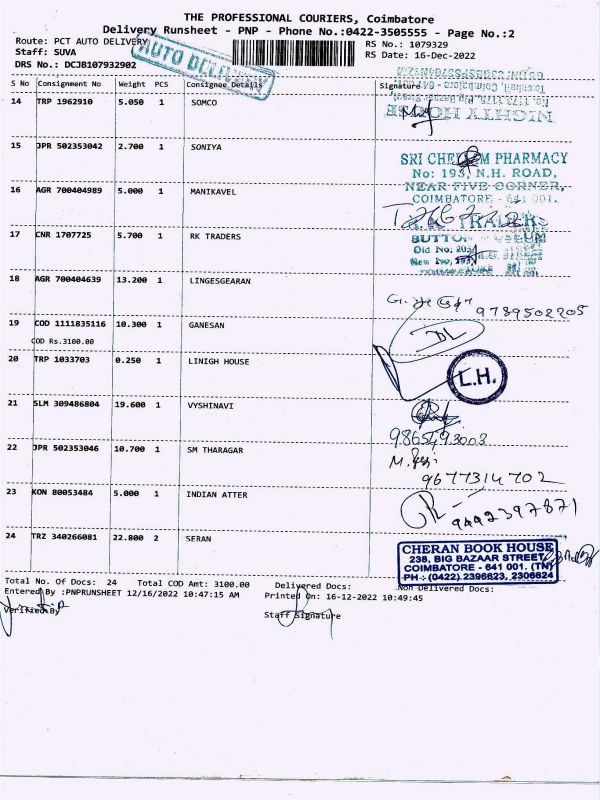 THE PROFESSIONAL COURIERS, Coimbatore
Delivery Runsheet - PNP - Phone No.:0422-3505555 - Page No.:2
Route: PCT AUTO DELIVERY
RS No.: 1079329
Staff: SUVA
RS Date: 16-Dec-2022
DRS No.: DCJB107932902
AUTO DELIVERY
S No Consignment No Weight PCS Consignee Details Signature
14 TRP 1962910 5.050 1 SOMCO
NIGHTY HOUSE
15 JPR 502353042 2.700 1 SONIYA
SRI PHARMACY
No: 193, N.H. ROAD,
NEAR FIVE CORNER,
COIMBATORE - 641 001.
16 AGR 700404989 5.000 1 MANIKAVEL
TRADERS
17 CNR 1707725 5.700 1 RK TRADERS
BUTTON
Old No: 203
18 AGR 700404639 13.200 1 LINGESGEARAN
9789502205
19 COD 1111835116 10.300 1 GANESAN
COD Rs.3100.00
20 TRP 1033703 0.250 1 LINIGH HOUSE
L.H.
21 SLM 309486804 19.600 1 VYSHINAVI
9865493003
22 JPR 502353046 10.700 1 SM THARAGAR
9677314702
23 KON 80053484 5.000 1 INDIAN ATTER
9442397871
24 TRZ 340266081 22.800 2 SERAN
CHERAN BOOK HOUSE
238, BIG BAZAAR STREET,
COIMBATORE - 641 001. (TN)
PH : (0422) 2396623, 2306624
Total No. Of Docs: 24 Total COD Amt: 3100.00 Delivered Docs: Non Delivered Docs:
Entered By :PNPRUNSHEET 12/16/2022 10:47:15 AM Printed On: 16-12-2022 10:49:45
Verified By Staff Signature